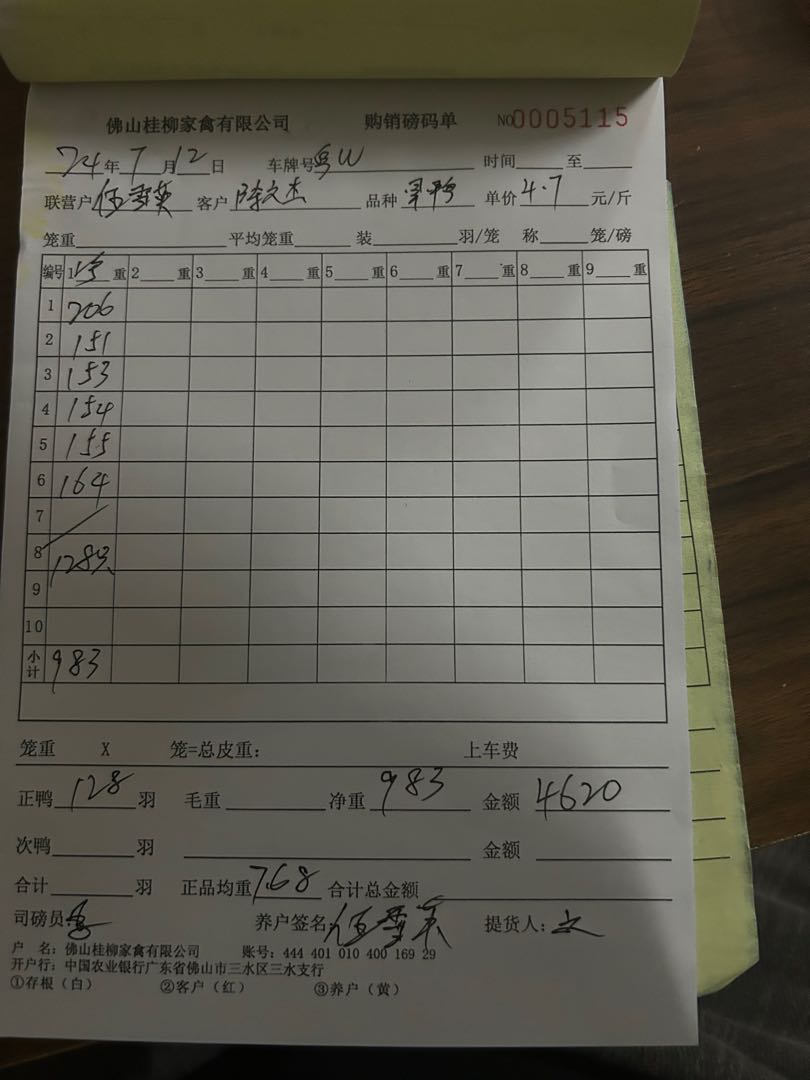 佛山桂柳家禽有限公司 购销磅码单 NO0005115
24年7月12日 车牌号粤W 时间 至
联营户 客户 陈文杰 品种 单价4.7元/斤
笼重 平均笼重 装 羽/笼 称 笼/磅
编号 1 重 2 重 3 重 4 重 5 重 6 重 7 重 8 重 9 重
1 206
2 151
3 153
4 154
5 155
6 164
7
8 128只
9
10
小计 983
笼重 X 笼=总皮重: 上车费
正鸭128羽 毛重 净重983 金额4620
次鸭 羽 金额
合计 羽 正品均重7.68 合计总金额
司磅员: 养户签名: 提货人: 文
户 名: 佛山桂柳家禽有限公司 账号: 444 401 010 400 169 29
开户行: 中国农业银行广东省佛山市三水区三水支行
①存根（白） ②客户（红） ③养户（黄）